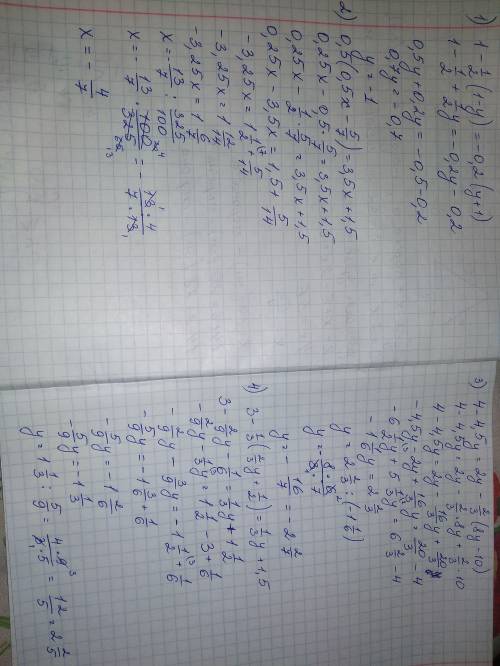 1) 1-1/2(1-y)=-0,2(y+1)
1-1/2+1/2y=-0,2y-0,2
0,5y+0,2y=-0,5-0,2
0,7y=-0,7
y=-1
2) 0,5(0,5x-5/7)=3,5x+1,5
0,25x-0,5·5/7=3,5x+1,5
0,25x-1/2·5/7=3,5x+1,5
0,25x-3,5x=1,5+5/14
-3,25x=1 1/2+5/14
-3,25x=1 12/14
-3,25x=1 6/7
x=-13/7:325/100
x=-13/7·100/325=-13·4/7·13
x=-4/7
3) 4-4,5y=2y-2/3(8y-10)
4-4,5y=2y-2/3·8y+2/3·10
4-4,5y=2y-16/3y+20/3
-4,5y-2y+16/3y=20/3-4
-6 1/2y+5 1/3y=6 2/3-4
-1 1/6y=2 2/3
y=2 2/3:(-1 1/6)
y=-8·6/3·7
y=-16/7=-2 2/7
4) 3-1/3(2/3y+1/2)=1/3y+1,5
3-2/9y-1/6=1/3y+1 1/2
-2/9y-1/3y=1 1/2-3+1/6
-2/9y-3/9y=-1 1/2+1/6
-5/9y=-1 3/6+1/6
-5/9y=-1 2/6
-5/9y=-1 1/3
y=1 1/3:5/9=4·9/3·5=12/5=2 2/5